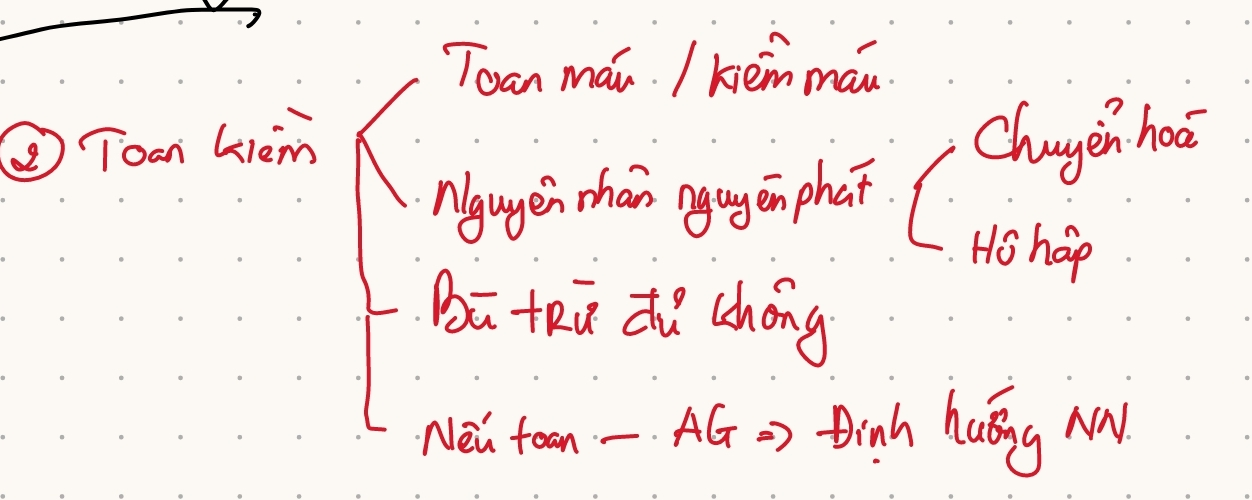 ② Toan kiềm
Toan máu / kiềm máu
Nguyên nhân nguyên phát
Chuyển hoá
Hô hấp
Bù trừ đủ không
Nếu toan — AG => Định hướng NN